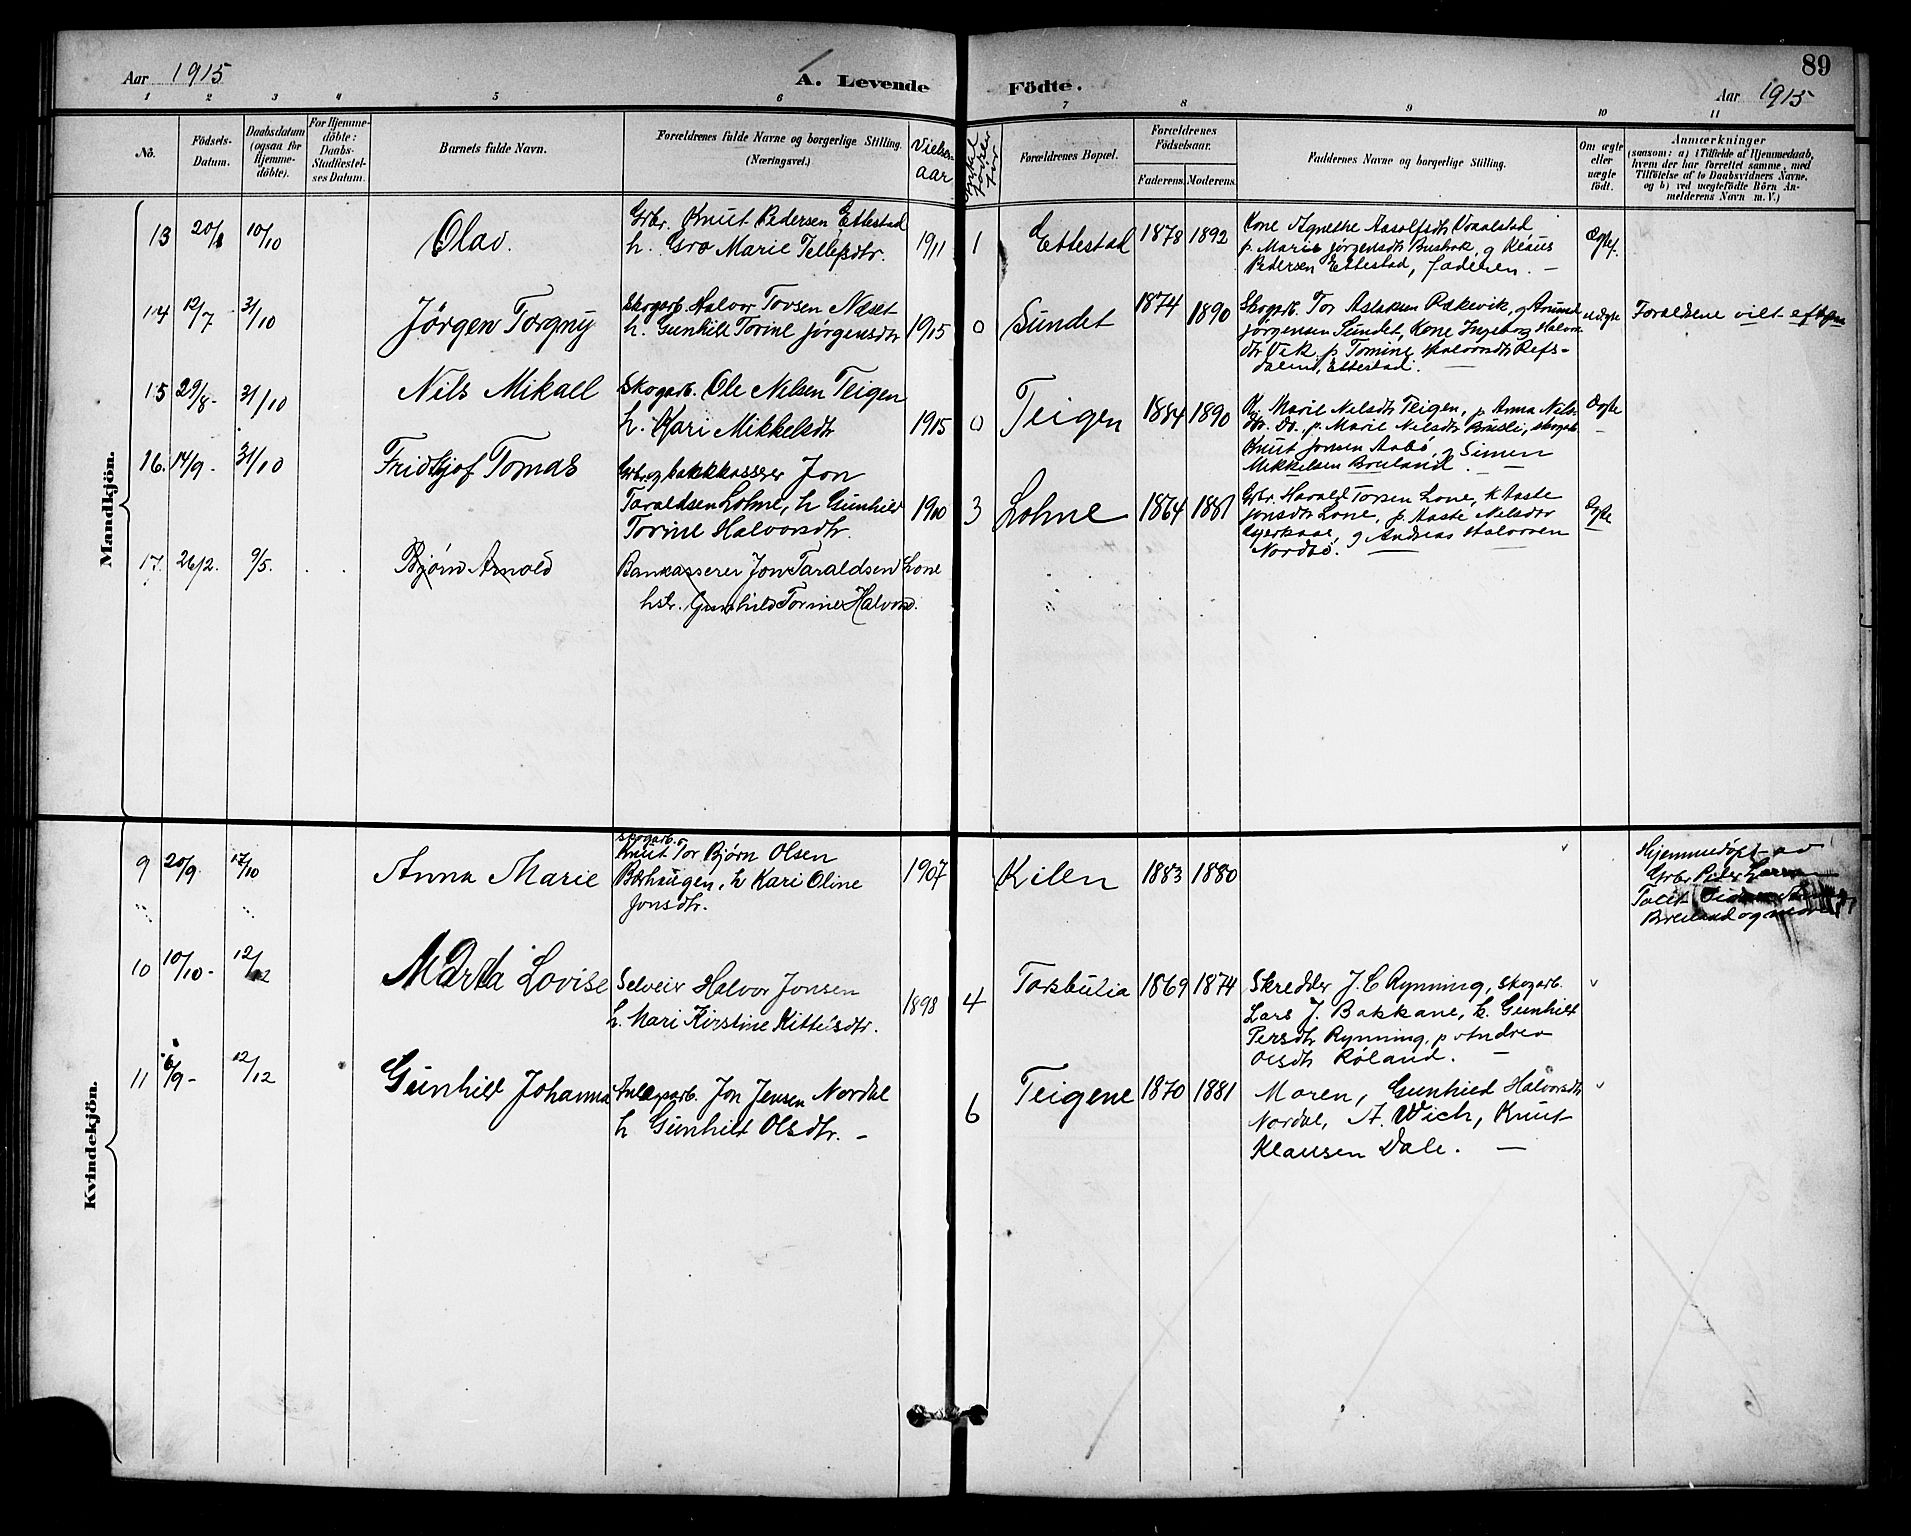 Aar 1915
A. Levende
Födte.
89
Aar 1915
1 2 3 4 5 6 7 8 9 10 11
No.
Födsels-
Datum.
Daabsdatum
(ogsaa for
Hjemme-
döbte).
For Hjemme-
döbte:
Daabs-
Stadfæstel-
ses Datum.
Barnets fulde Navn.
Forældrenes fulde Navne og borgerlige Stilling.
(Næringsvei.)
Vielses-
aar
Forældrenes Bopæl.
Forældrenes
Födselsaar.
Faderens. Moderens.
Faddernes Navne og borgerlige Stilling.
Om ægte
eller
uægte
födt.
Anmærkninger
(saasom: a) i Tilfælde af Hjemmedaab,
hvem der har forrettet samme, med
Tilföielse af to Daabsvidners Navne,
og b) ved uægtefödte Börn An-
melderens Navn m. V.)
Mandkjön.
13 20/8 10/10 Olav.
Grbr. Knut Pedersen Ettestad
h. Gro Marie Tellefsdtr. 1911
1 Ettestad 1878 1892
Kone Agnethe Aasolfsdtr Vraalstad
p. Marie Jørgensdtr Busbak, g Klaus
Pedersen Ettestad, faderen. —
Ægte.
14 12/7 31/10 Jörgen Torgny
Skogarb. Halvor Tovsen Næset
h. Gunhild Torine Jørgensdtr 1915
0 Sundet 1874 1890
Skogarb. Tor Aslaksen Rækevik, og Anund
Jørgensen Sundet, Kone Ingeborg Halvors
dtr Vik, p. Tomine Halvorsdtr Refs-
dalen, Ettestad.
uægte
Forældrene viet
15 29/8- 31/10 Nils Mikael
Skogarb. Ole Nelsen Teigen
h. Kari Mikkelsdtr 1915
0 Teigen 1884 1890
Marie Nilsdtr Teigen, p Anna Nils-
dtr. Do., p. Marie Nilsdtr Brusli, skogarb.
Knut Jonsen Aabø, g Simen
Mikkelsen Breiland. —
Ægte
16. 14/9- 31/10 Fridtjof Tomas
Grbr. og bankkasserer Jon
Taraldsen Lohne, h Gunhild
Torine Halvorsdtr. 1910
3 Lohne 1864 1881
Grbr. Harald Torsen Lone, k Aaste
Jonsdtr Lone, p. Aaste Nelsdtr
g Andreas Halvorsen
Nordbø.
Ægte
17. 26/2. 9/5. Bjørn Arnold
Bankasserer Jon Taraldsen Lone
hstr. Gunhild Torine Halvorsd.
Kvindekjön.
9 20/9. 17/10 Anna Marie
Skogarb.
Knut Tor Bjørn Olsen
Bærhaugen, h Kari Oline
Jonsdtr. 1907
Kilen 1883 1880
Hjemmedøpt av
Grbr Peder Larsen
Breiland og mor
10 10/10- 12/12 Marta Lovise
Selveier Halvor Jonsen
h. Mari Kirstine Kittilsdtr. 1898
4 Torsbulia 1869 1874
Skredder J. C Rynning, skogarb.
Lars J. Bakkane, k. Gunhild
Persdtr Rynning, p Andrea
Olsdtr Røland. —
11 6/9- 12/12 Gunhild Johanna
Anlegsarb. Jon Jensen Nordal
h Gunhild Olsdtr. —
6 Teigene 1870 1881
Moren, Gunhild Halvorsdtr
Nordal, A. Wich, Knut
Klausen Dale. —